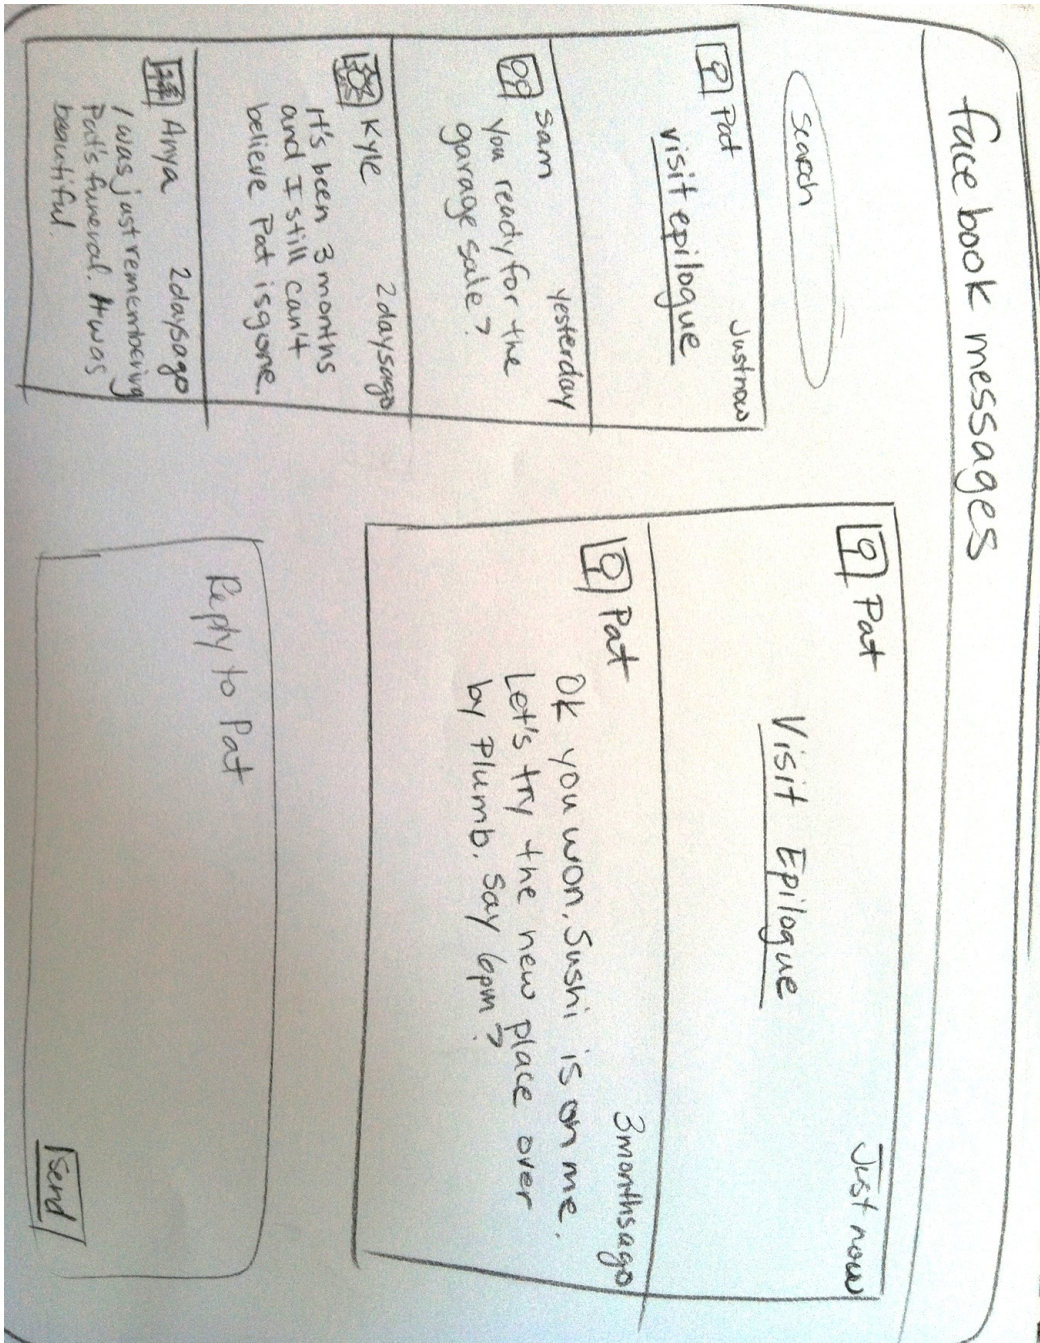 facebook messages
search
Pat Just now
visit epilogue
Sam yesterday
you ready for the
garage sale?
Kyle 2 days ago
It's been 3 months
and I still can't
believe Pat is gone.
Anya 2 days ago
I was just remembering
Pat's funeral. It was
beautiful.
Pat Just now
Visit Epilogue
Pat 3 months ago
Ok you won. Sushi is on me.
Let's try the new place over
by Plumb. Say 6pm?
Reply to Pat
Send